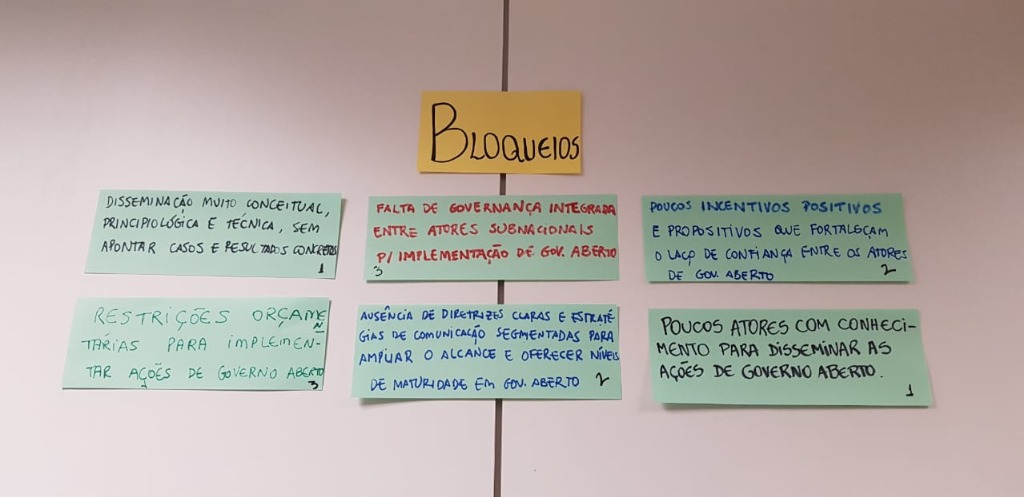 BLOQUEIOS
DISSEMINAÇÃO MUITO CONCEITUAL,
PRINCIPIOLÓGICA E TÉCNICA, SEM
APONTAR CASOS E RESULTADOS CONCRETOS
1
FALTA DE GOVERNANÇA INTEGRADA
ENTRE ATORES SUBNACIONAIS
P/ IMPLEMENTAÇÃO DE GOV. ABERTO
3
POUCOS INCENTIVOS POSITIVOS
E PROPOSITIVOS QUE FORTALEÇAM
O LAÇO DE CONFIANÇA ENTRE OS ATORES
DE GOV. ABERTO
2
RESTRIÇÕES ORÇAMEN
TÁRIAS PARA IMPLEMEN-
TAR AÇÕES DE GOVERNO ABERTO
3
AUSÊNCIA DE DIRETRIZES CLARAS E ESTRATÉ-
GIAS DE COMUNICAÇÃO SEGMENTADAS PARA
AMPLIAR O ALCANCE E OFERECER NÍVEIS
DE MATURIDADE EM GOV. ABERTO
2
POUCOS ATORES COM CONHECI-
MENTO PARA DISSEMINAR AS
AÇÕES DE GOVERNO ABERTO.
1